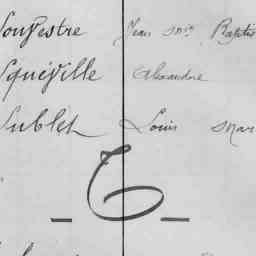 Souvestre Jean M<sup>ie</sup> Baptis
Squéville Alexandre
Sublet Louis Mar
- T -